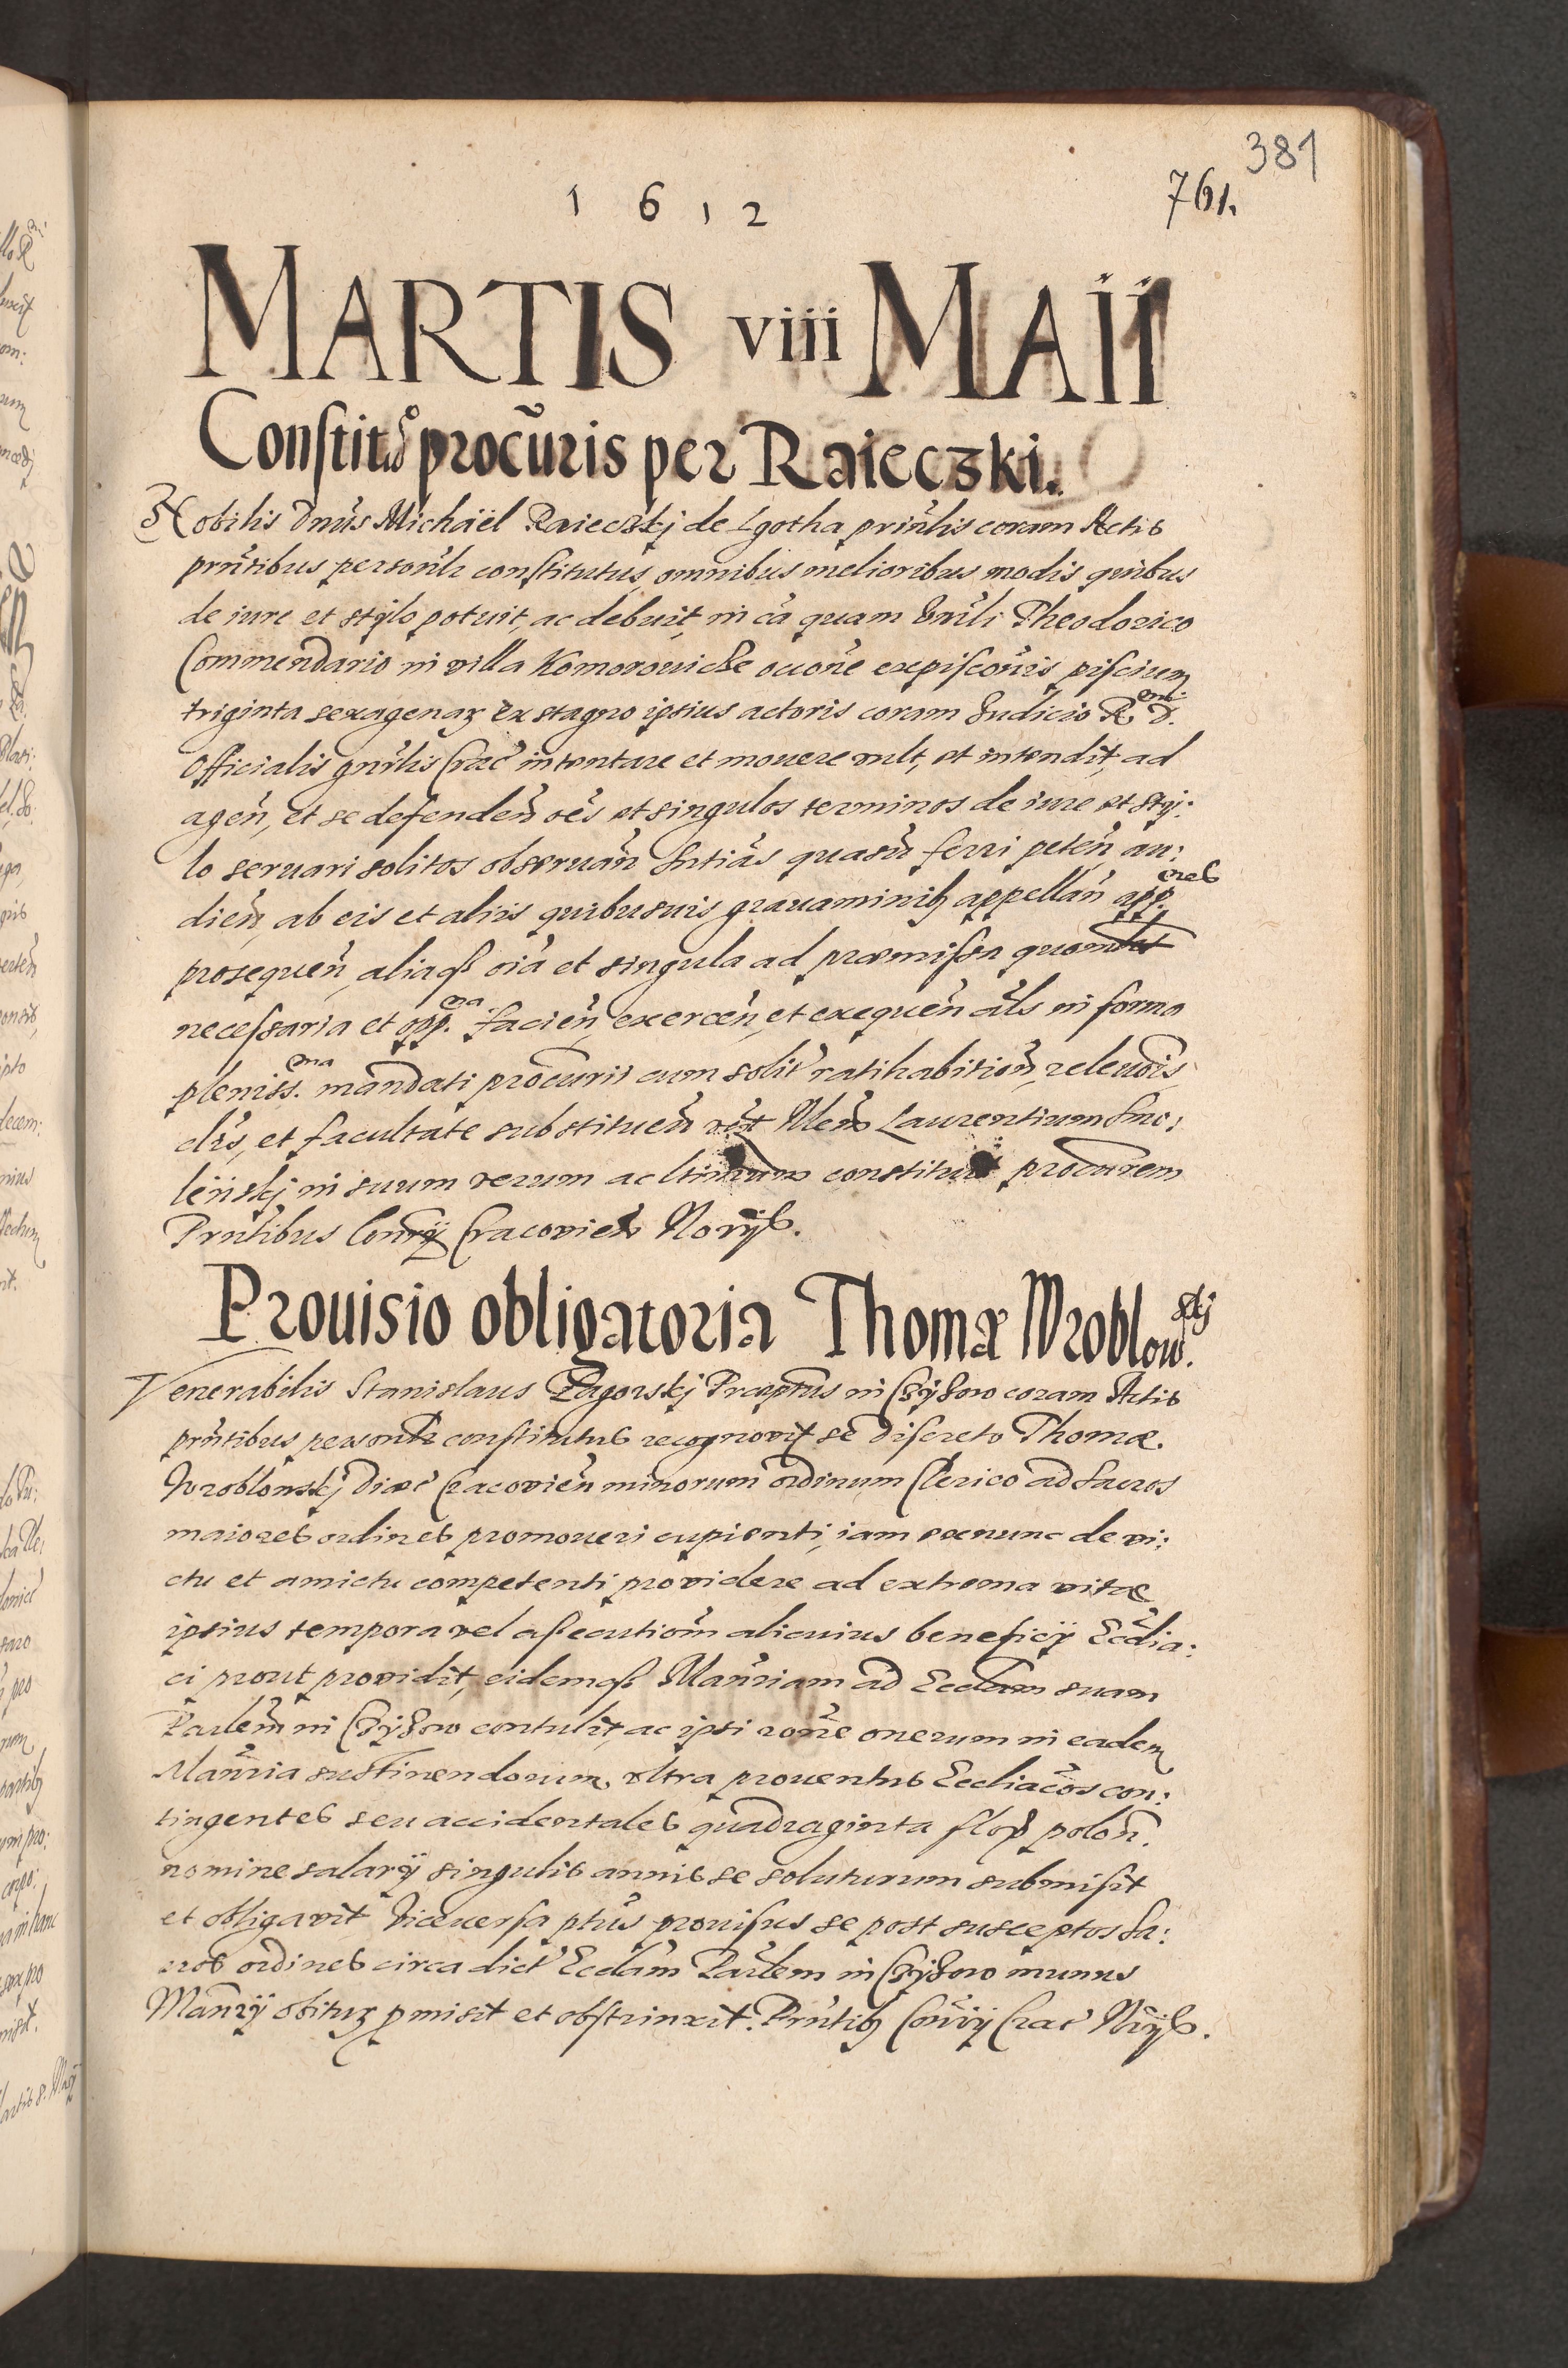 381
761.
1 6 1 2
MARTIS viii MAII
Constitᵒ procuris per Raieczki.
Nobilis Dnūs Michaël Raieczkj de Lgotha prin̄lis coram Actis
prn̄tibus person̄lr constitutus, omnibus melioribus modis quibus
de iure et stylo potuit, ac debuit, in cā quam Vn̄li Theodorico
Commendario in villa Komorowicze occōne expiscōnis piscium
triginta sexagenaꝝ ex stagno ipsius actoris coram Judicio R.ᵐⁱ D.
Officialis gn̄rlis Crac intentare et mouere vult, et intendit, ad
agen̄, et se defenden̄ oēs et singulos terminos de iure et sty:
lo seruari solitos obseruan̄ Sn̄tiās quasūis ferri peten̄, au:
dien̄, ab eis et aliis quibusuis grauaminibꝫ appellan̄ app.ⁿᵉˢ
prosequen̄, aliaqꝫ oiā et singula ad præmissa quomlt
necessaria et opp.ⁿᵃ facien̄, exercen̄, et exequen̄ als in forma
pleniss.ᵐᵃ mandati procuris cum solit ratihabition̄, releuōis,
clis, et facultate substituen̄ Laurentium Smo:
lenskj in suum verum ac ltimum constituit procurem
Prn̄tibus Con̄rij Cracovien̄ Norijs.
Prouisio obligatoria Thomæ Wroblow.ˢᵏʲ
Venerabilis Stanislaus Zagorskj Præptus in coram Actis
prn̄tibus person̄lr constitutus recognovit se discreto Thomæ.
Wroblowskj Diæc Cracovien̄ minorum ordinum Clerico ad Sacros
maiores ordines promoueri cupienti, iam exnunc de vi:
ctu et amictu competenti providere ad extrema vitæ
ipsius tempora vel assecution̄ alicuius beneficij Eccl̄ia:
ci prout providit, eidemqꝫ Man̄riam ad Eccl̄am suam
Parlem̄ in contulit, ac ipsi rōne onerum in eadem
Man̄ria sustinendorum, vltra prouentus Eccliac̄os con:
tingentes seu accidentales quadraginta flor̄ polon̄.
nomine salarij singulis annis se soluturum submisit
et obligavit Viceversa ptūs prouisus se post susceptos Sa:
cros ordines circa dict Eccl̄am Parlem in munus
Man̄rij obituꝝ pmisit et obstrinxit. Prn̄tibꝫ Con̄rij Crac Nrijs.